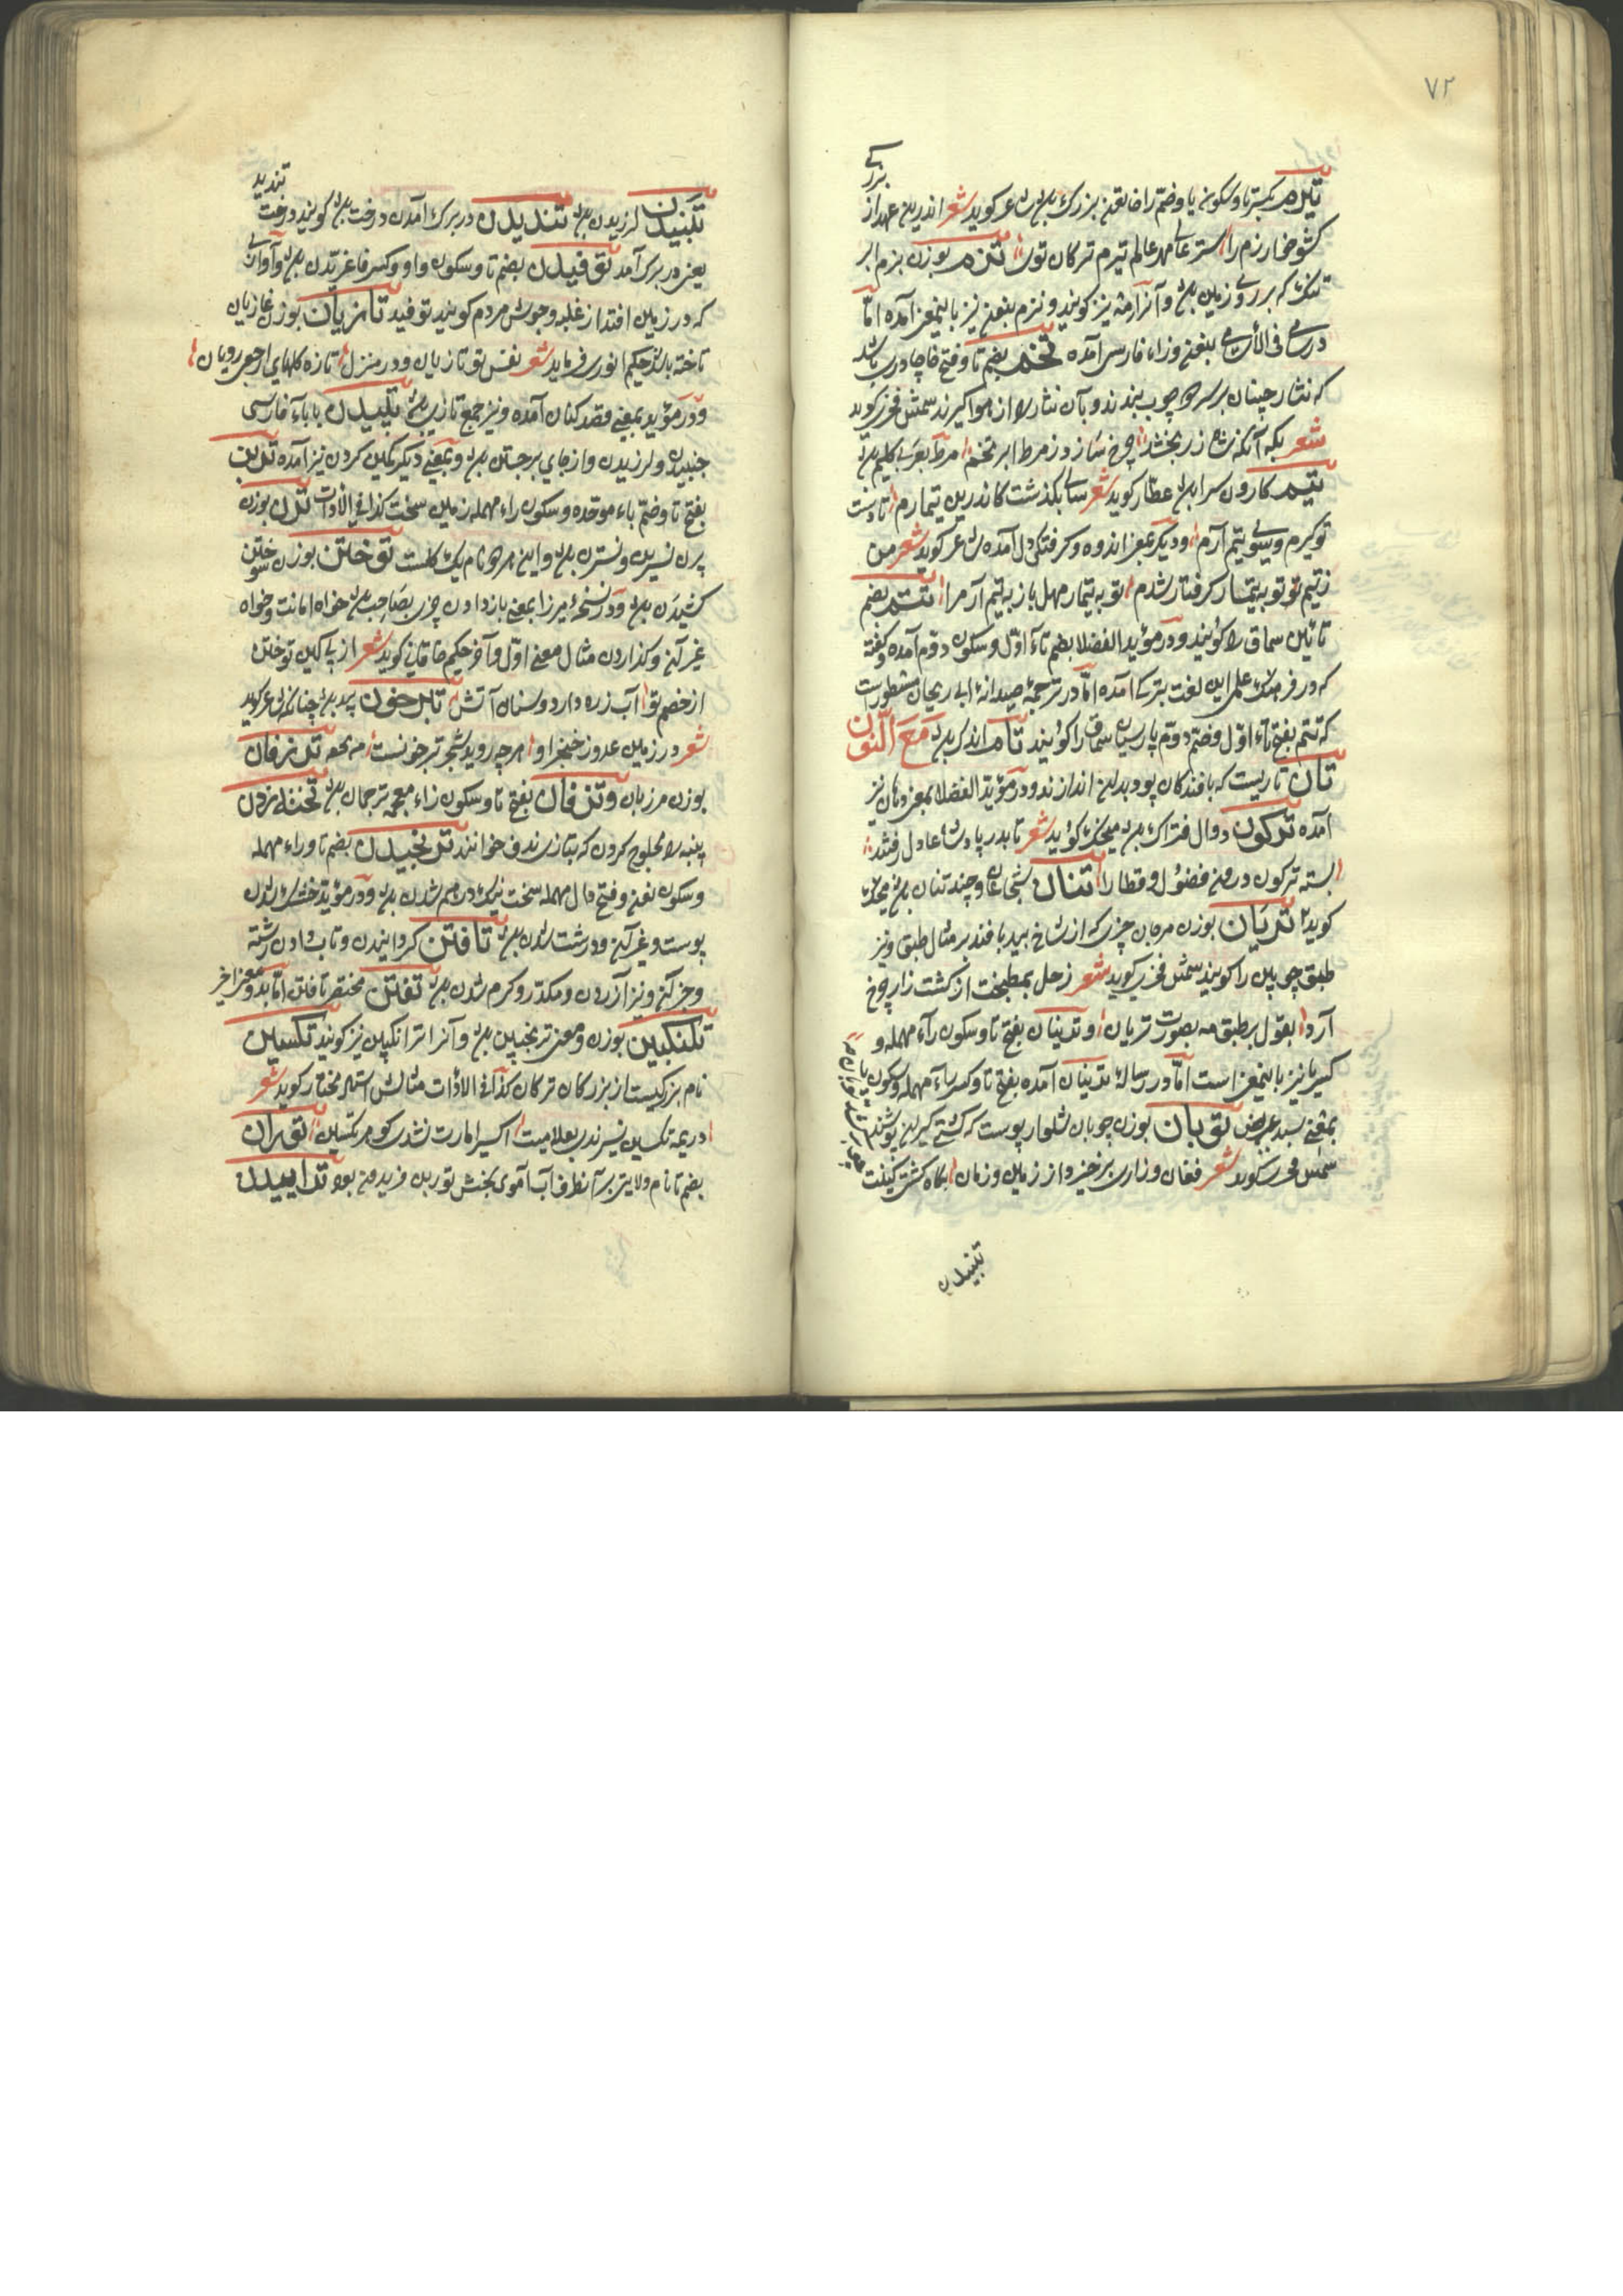 ۷۲
بزرگ
تیرم بکسر تا و سکون یا و ضم را خاتون بزرگ بود شاعر گوید شعر اندرین عهد از
کشو خوارزم را ستر عالی مهد عالم تیرم ترکان توئ تزم بوزن بزم ابر
تنک که بر روی زمین بود و آنرا مژه نیز گویند و نزم بنون نیز باینمعنی آمده اما
در سامی فی الاسامی بنون و زاء فارسی آمده تخم بضم تا و فتح خا چادری باشد
که نثار چینان بر سر دو چوب بندند و بآن نثار را از هوا گیرند شمس فخری گوید
شعر بکه آنکه شاه زر بخشد چرخ سازد ز مرط ابر تخم مرط بعربی گلیم بود
تیم کاروان سرا بود عطار گوید شعر سالی بگذشت کاندرین تیمارم تا دست
تو گیرم و بسوی تیم آرم و دیگر بمعنی اندوه و گرفتگی دل آمده شاعر گوید شعر من
ز تیم تو به تیمار گرفتار شدم تو به تیمار مهل باز به تیم آر مرا تتم بضم
تائین سماق را گویند و در مؤید الفضلا بضم تاء اول و سکون دوم آمده و گفته
که در فرهنگ علمی این لغت ترکی آمده اما در ترجمهٔ صیدانهٔ ابی ریحان مسطور است
که تتم بفتح تاء اول و ضم دوم پارسیان سماق را گویند تام اندک بود مع النون
تان تاریست که بافندگان پود بدان اندازند و در مؤید الفضلا بمعنی دهان نیز
آمده ترکون دوال فتراک بود منجیک گوید شعر تا بدر پادشاه عادل رفتند
بسته ترکون درون فضول و قطارا تنان شجاعان و چند تنان بود منجیک
گوید تریان بوزن مرجان چیزی که از شاخ بید بافند بر مثال طبق و نیز
طبق چوبین را گویند شمس فخری گوید شعر زحل بمطبخت از کشت زار چرخ
آرد بقول بر طبق مه بصورت تریان و تدینان بفتح تا و سکون راء مهمله و
کسر یا نیز باینمعنی است اما در رسالهٔ تدینان آمده بفتح تا و کسر راء مهمله و سکون یا
بمعنی سبد عریض توبان بوزن چوبان شلوار پوست که کشتی گیران پوشند
شمس فخری گوید شعر فغان و زاری بر خیزد از زمین و زمان بگاه کشتی کینت
تبنیدن
تبنیدن لرزیدن بود تندیدن در برگ آمدن درخت بود گویند درخت تندید
یعنی در برگ آمد توفیدن بضم تا و سکون واو و کسر فا غریدن بود و آوازی
که در زمین افتد از غلبه و جوش مردم گویند توفید تازیان بوزن غازیان
تاخته باشد حکیم انوری فرماید شعر نفس تو تازیان و در منزل تازه گلهای ارجعی رویان
و در مؤید بمعنی قصد کنان آمده و نیز جمع تازی بود تپیدن با باء فارسی
جنبیدن و لرزیدن و از جای برجستن بود و بمعنی دیگر کمین کردن نیز آمده تربن
بفتح تا و ضم باء موحده و سکون راء مهمله زمین سخت کذا فی الادات ترن بوزن
پرن نسرین و نسترن بود و این هر دو نام یک گلست توختن بوزن سوختن
کشیدن بود و در نسخهٔ میرزا بمعنی باز دادن چیزی بصاحب بود خواه امانت و خواه
غیر آن و گذاردن مثال معنی اول و آخر حکیم خاقانی گوید شعر از پی کین توختن
از خصم تو آب زره دارد و سنان آتش تبرخون بید بود چنانکه شاعر گوید
شعر در زمین عدو ز خنجر او هر چه روید شجر تبرخونست ترزفان
بوزن مرزبان و تزفان بفتح تا و سکون زاء معجمه ترجمان بود تخته زدن
پنبه را محلوج کردن که بتازی ندف خوانند ترنجیدن بضم تا و راء مهمله
و سکون نون و فتح دال مهمله سخت نیک درهم شدن بود و در مؤید خشک شدن
پوست و غیر آن و درشت شدن بود تافتن گردانیدن و تاب دادن رشته
و جز آن و نیز آزردن و مکدر و گرم شدن بود تفتن مختصر تافتن اما بدو معنی اخیر
ترنگبین بوزن و معنی ترنجبین بود و آنرا ترانگبین نیز گویند تکسین
نام بزرگیست از بزرگان ترکان کذا فی الادات مثالش استاد مختار گوید شعر
اکسیر امارت نشدی گوهر تکسین توران
بضم تا نام ولایتی بر آنطرف آب آموی بخش تور بن فریدون بود ترابیدن